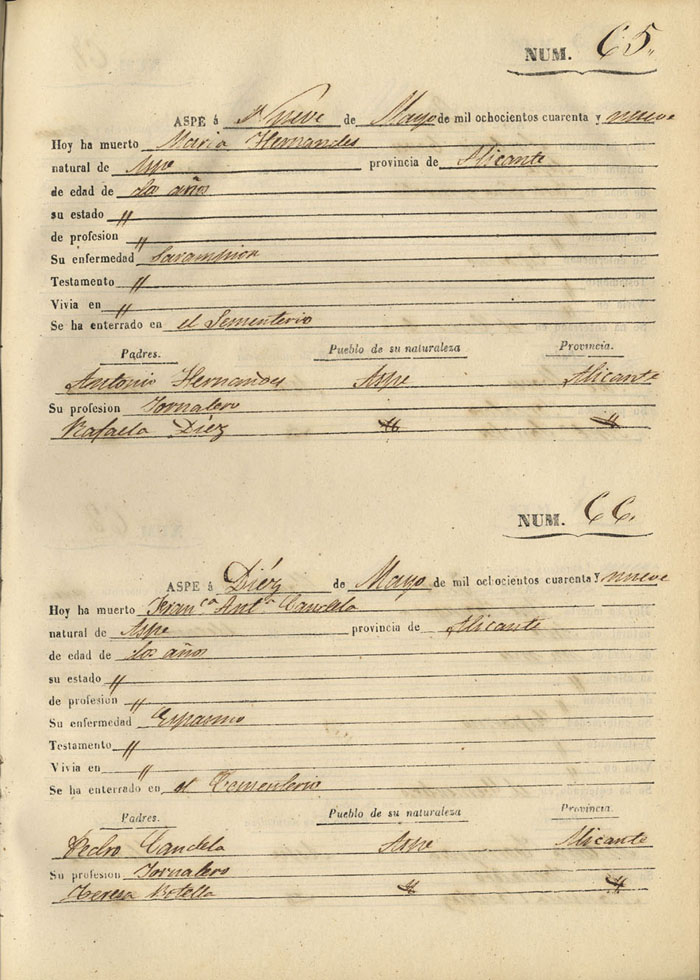 NUM. 65.
ASPE á Nueve de Mayo de mil ochocientos cuarenta y nueve
Hoy ha muerto Maria Hernandes
natural de Aspe provincia de Alicante
de edad de dos años
su estado "
de profesion "
Su enfermedad Sarampion
Testamento "
Vivia en "
Se ha enterrado en el Sementerio
Padres. Pueblo de su naturaleza Provincia.
Antonio Hernandes Aspe Alicante
Su profesion Jornalero
Rafaela Diéz " "
NUM. 66.
ASPE á Diéz de Mayo de mil ochocientos cuarenta Y nueve
Hoy ha muerto Fran.ca Ant.a Candela
natural de Aspe provincia de Alicante
de edad de dos años
su estado "
de profesion "
Su enfermedad Espasmo
Testamento "
Vivia en "
Se ha enterrado en el Cementerio
Padres. Pueblo de su naturaleza Provincia.
Pedro Candela Aspe Alicante
Su profesion Jornalero
Teresa Botella " "